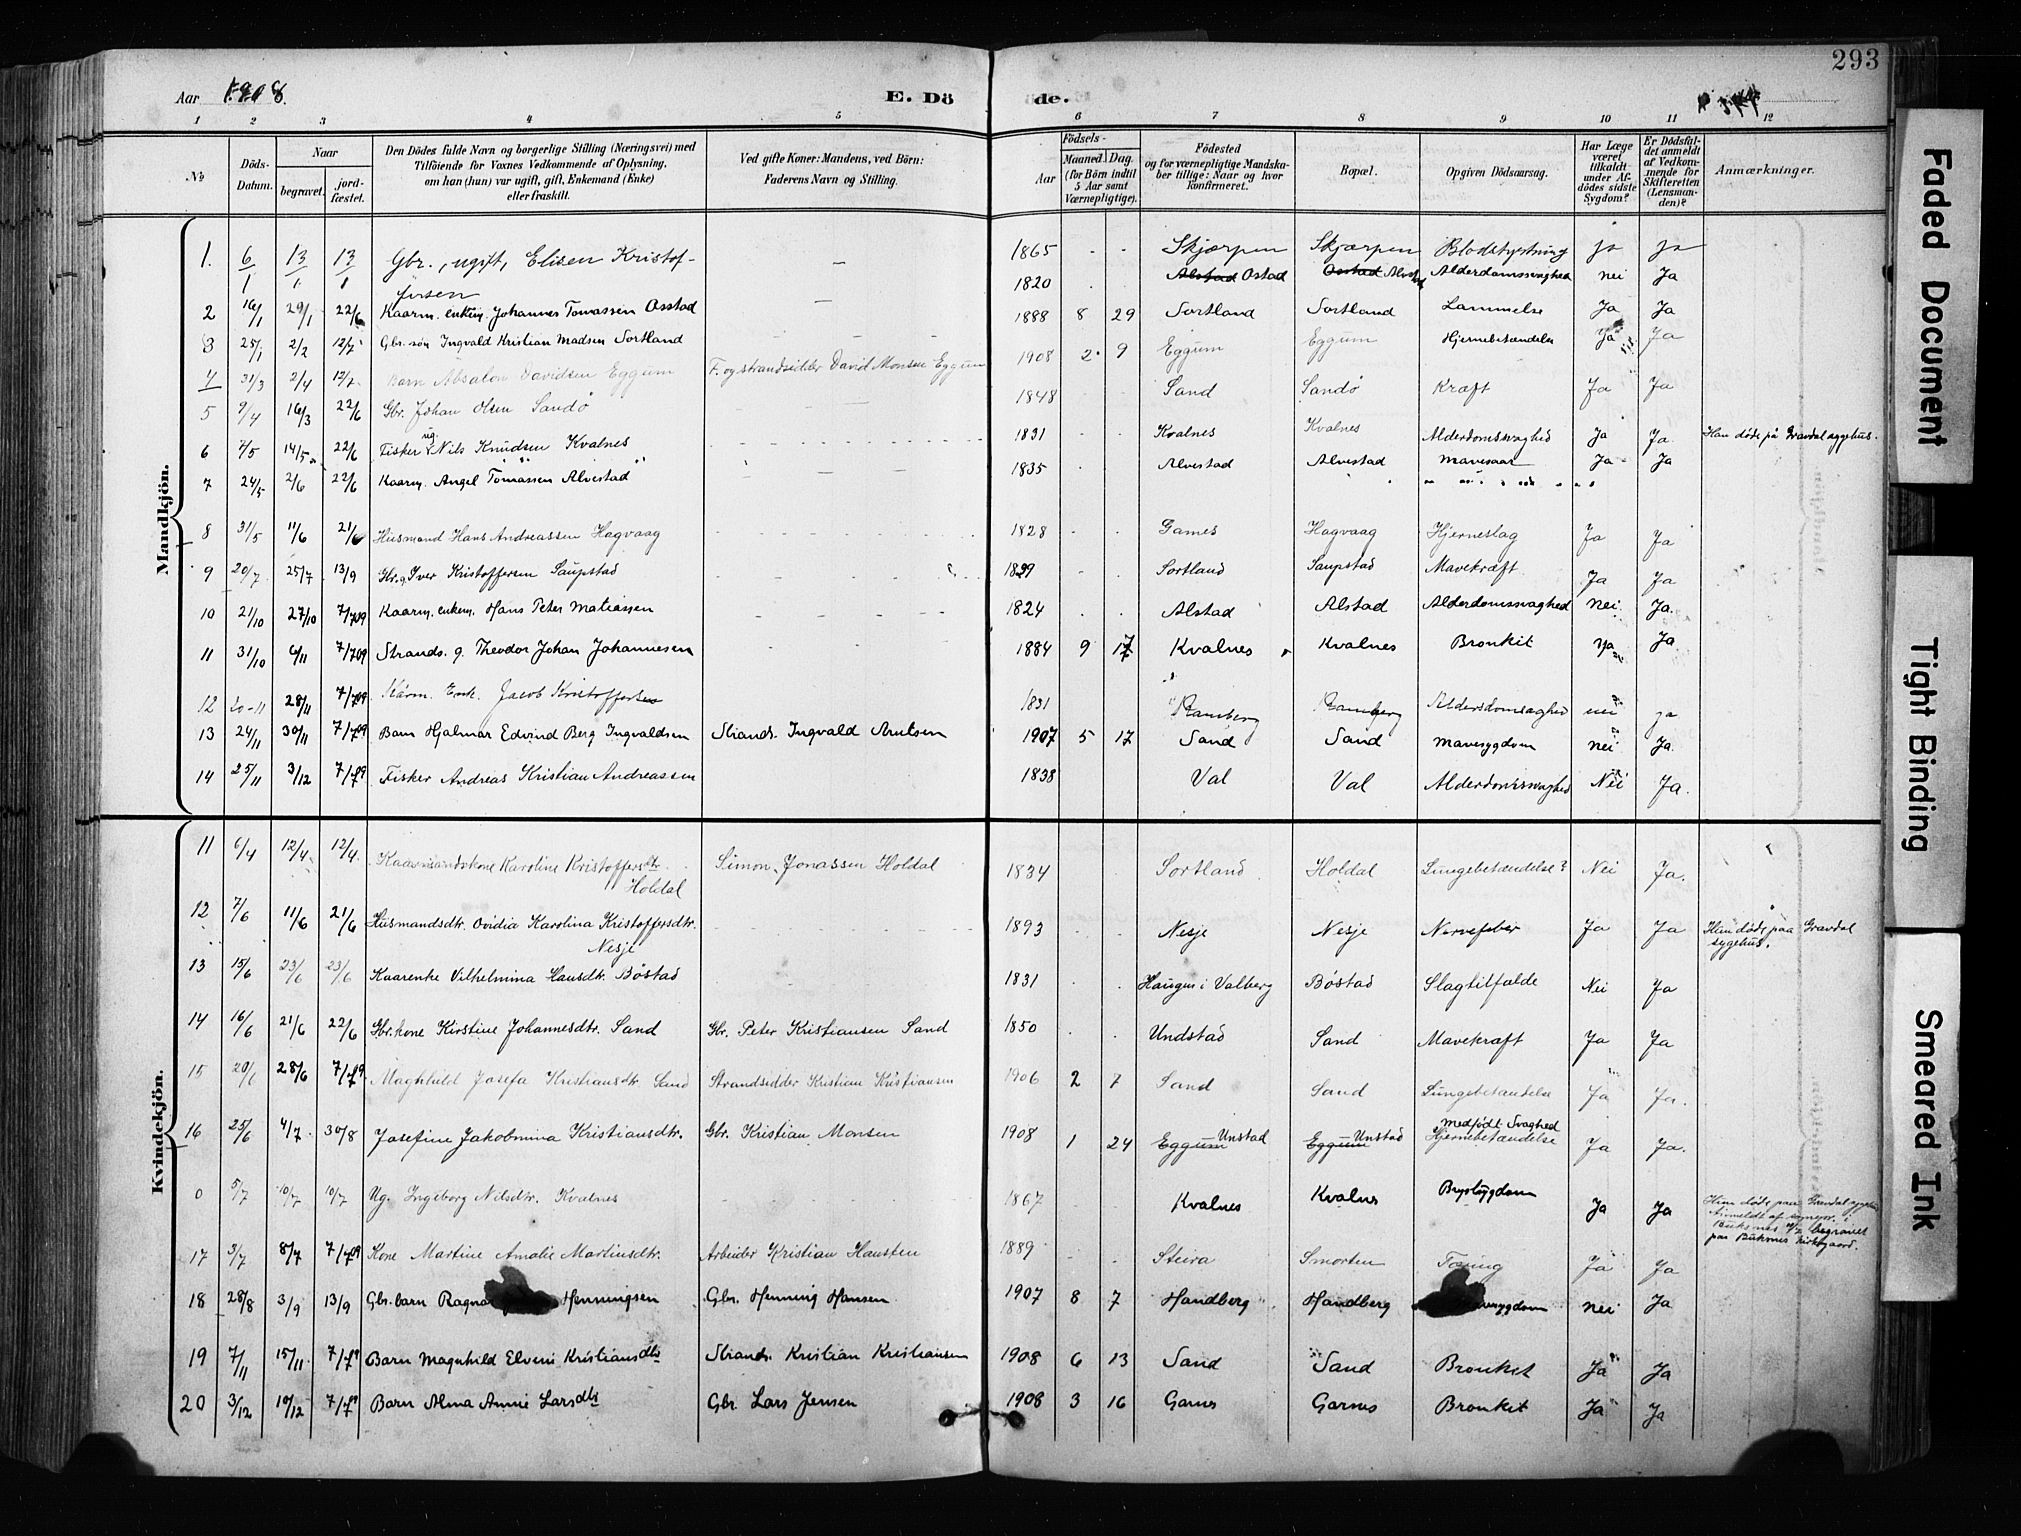 293
Aar 1908.
E. Döde.
1 2 3 4 5 6 7 8 9 10 11 12
No
Döds-Datum.
Naar
begravet.
jordfæstet.
Den Dödes fulde Navn og borgerlige Stilling (Næringsvei) med
Tilföiende for Voxnes Vedkommende af Oplysning,
om han (hun) var ugift, gift, Enkemand (Enke)
eller fraskilt.
Ved gifte Koner: Mandens, ved Börn:
Faderens Navn og Stilling.
Födsels-
Aar
Maaned. Dag.
(for Börn indtil
5 Aar samt
Værnepligtige).
Födested
og for værnepligtige Mandskaber
tillige: Naar og hvor
konfirmeret.
Bopæl.
Opgiven Dödsaarsag.
Har Læge
været
tilkaldt
under Afdödes
sidste
Sygdom?
Er Dödsfaldet
anmeldt
af Vedkommende
for
Skifteretten
(Lensmanden)?
Anmærkninger.
Mandkjön.
1. 6/1 13/1 13/1 Gbr., ugift, Elisen Kristofersen — 1865 Skjærpen Skjærpen Blodstyrtning ja ja
2 16/1 29/1 22/6 Kaarm. enkem. Johannes Tomassen Osstad — 1820 Alstad Ostad Osstad Alstad Alderdomssvaghed nei Ja
3 25/1 2/2 12/7 Gbr. søn Ingvald Kristian Madsen Sortland 1888 8 29 Sortland Sortland Lammelse Ja Ja
4 31/3 2/4 12/7 Barn Absalon Davidsen Eggum F. og strandsidder David Monsen Eggum 1908 2 9 Eggum Eggum Hjernebetændelse Ja Ja
5 9/4 16/3 22/6 Gbr. Johan Olsen Sandø 1848 Sand Sandø Kræft Ja Ja
6 4/5 14/5 22/6 Fisker ug. Nils Knudsen Kvalnes 1831 Kvalnes Kvalnes Alderdomssvaghed Ja Ja Han døde på Gravdal sygehus.
7 24/5 2/6 22/6 Kaarm. Angel Tomassen Alvestad 1835 Alvestad Alvestad Mavesaar Ja Ja
8 31/5 11/6 21/6 Husmand Hans Andreassen Hagvaag 1828 Garnes Hagvaag Hjerneslag Ja Ja
9 20/7 25/7 13/9 Gbr. g. Iver Kristoffersen Saupstad 1829 Sortland Saupstad Mavekræft Ja Ja
10 21/10 27/10 7/709 Kaarm. enkem. Hans Peter Matiassen 1824 Alstad Alstad Alderdomssvaghed nei Ja
11 31/10 6/11 7/709 Strands. g. Theodor Johan Johannesen 1884 9 17 Kvalnes Kvalnes Bronkit Ja Ja
12 20-11 28/11 7/709 Kårm. Enk. Jacob Kristoffersen 1831 Ramberg Ramberg Aldersdomsvaghed nei ja
13 24/11 30/11 7/709 Barn Hjalmar Edvind Berg Ingvaldsen Strands. Ingvald Arntsen 1907 5 17 Sand Sand Mavesygdom nei Ja
14 25/11 3/12 7/709 Fisker Andreas Kristian Andreassen 1838 Val Val Alderdomssvaghed Nei Ja.
Kvindekjön.
11 6/4 12/4 12/4 Kaarmandskone Karoline Kristoffersdtr. Holdal Simon Jonassen Holdal 1834 Sortland Holdal Lungebetændelse? Nei Ja.
12 7/6 11/6 21/6 Husmandsdtr. Ovidia Karolina Kristoffersdtr. Nesje 1893 Nesje Nesje Nervefeber Ja Ja Hun døde paa Gravdal sygehus.
13 15/6 23/6 23/6 Kaarenke Vilhelmina Hansdtr. Bøstad 1831 Haugen i Valberg Bøstad Slagtilfælde Nei Ja
14 16/6 21/6 22/6 Gbr. kone Kirstine Johannesdtr. Sand Gbr. Peter Kristiansen Sand 1850 Undstad Sand Mavekræft Ja Ja
15 20/6 28/6 7/709 Maghhild Josefa Kristiansdtr. Sand Strandsidder Kristian Kristiansen 1906 2 7 Sand Sand Lungebetændelse Ja Ja.
16 25/6 4/7 30/8 Josefine Jakobmina Kristiansdtr. Gbr. Kristian Monsen 1908 1 24 Eggum Unstad Eggum Unstad Medfødt Svaghed Hjernebetændelse Ja Ja.
0 5/7 10/7 10/7 Ug. Ingeborg Nilsdtr. Kvalnes 1867 Kvalnes Kvalnes Brystsygdom Ja Ja Hun døde paa Gravdal sygehus Anmeldt af sognepr. i Buksnes begravet paa Buksnes kirkegaard.
17 3/7 8/7 7/709 Kone Martine Amalie Martinsdtr. Arbeider Kristian Hansten 1889 Steira Smorten Tæring Ja Ja
18 28/8 3/9 13/9 Gbr. barn Ragna Henningsen Gbr. Henning Hansen 1907 8 7 Handberg Handberg sygdom nei Ja
19 7/11 15/11 7/709 Barn Magnhild Elveni Kristiansdtr Strands. Kristian Kristiansen 1908 6 13 Sand Sand Bronket Ja Ja
20 3/12 10/12 7/709 Barn Alma Annie Larsdtr Gbr. Lars Jensen 1908 3 16 Garnes Garnes Bronkit Ja Ja
Faded Document
Tight Binding
Smeared Ink